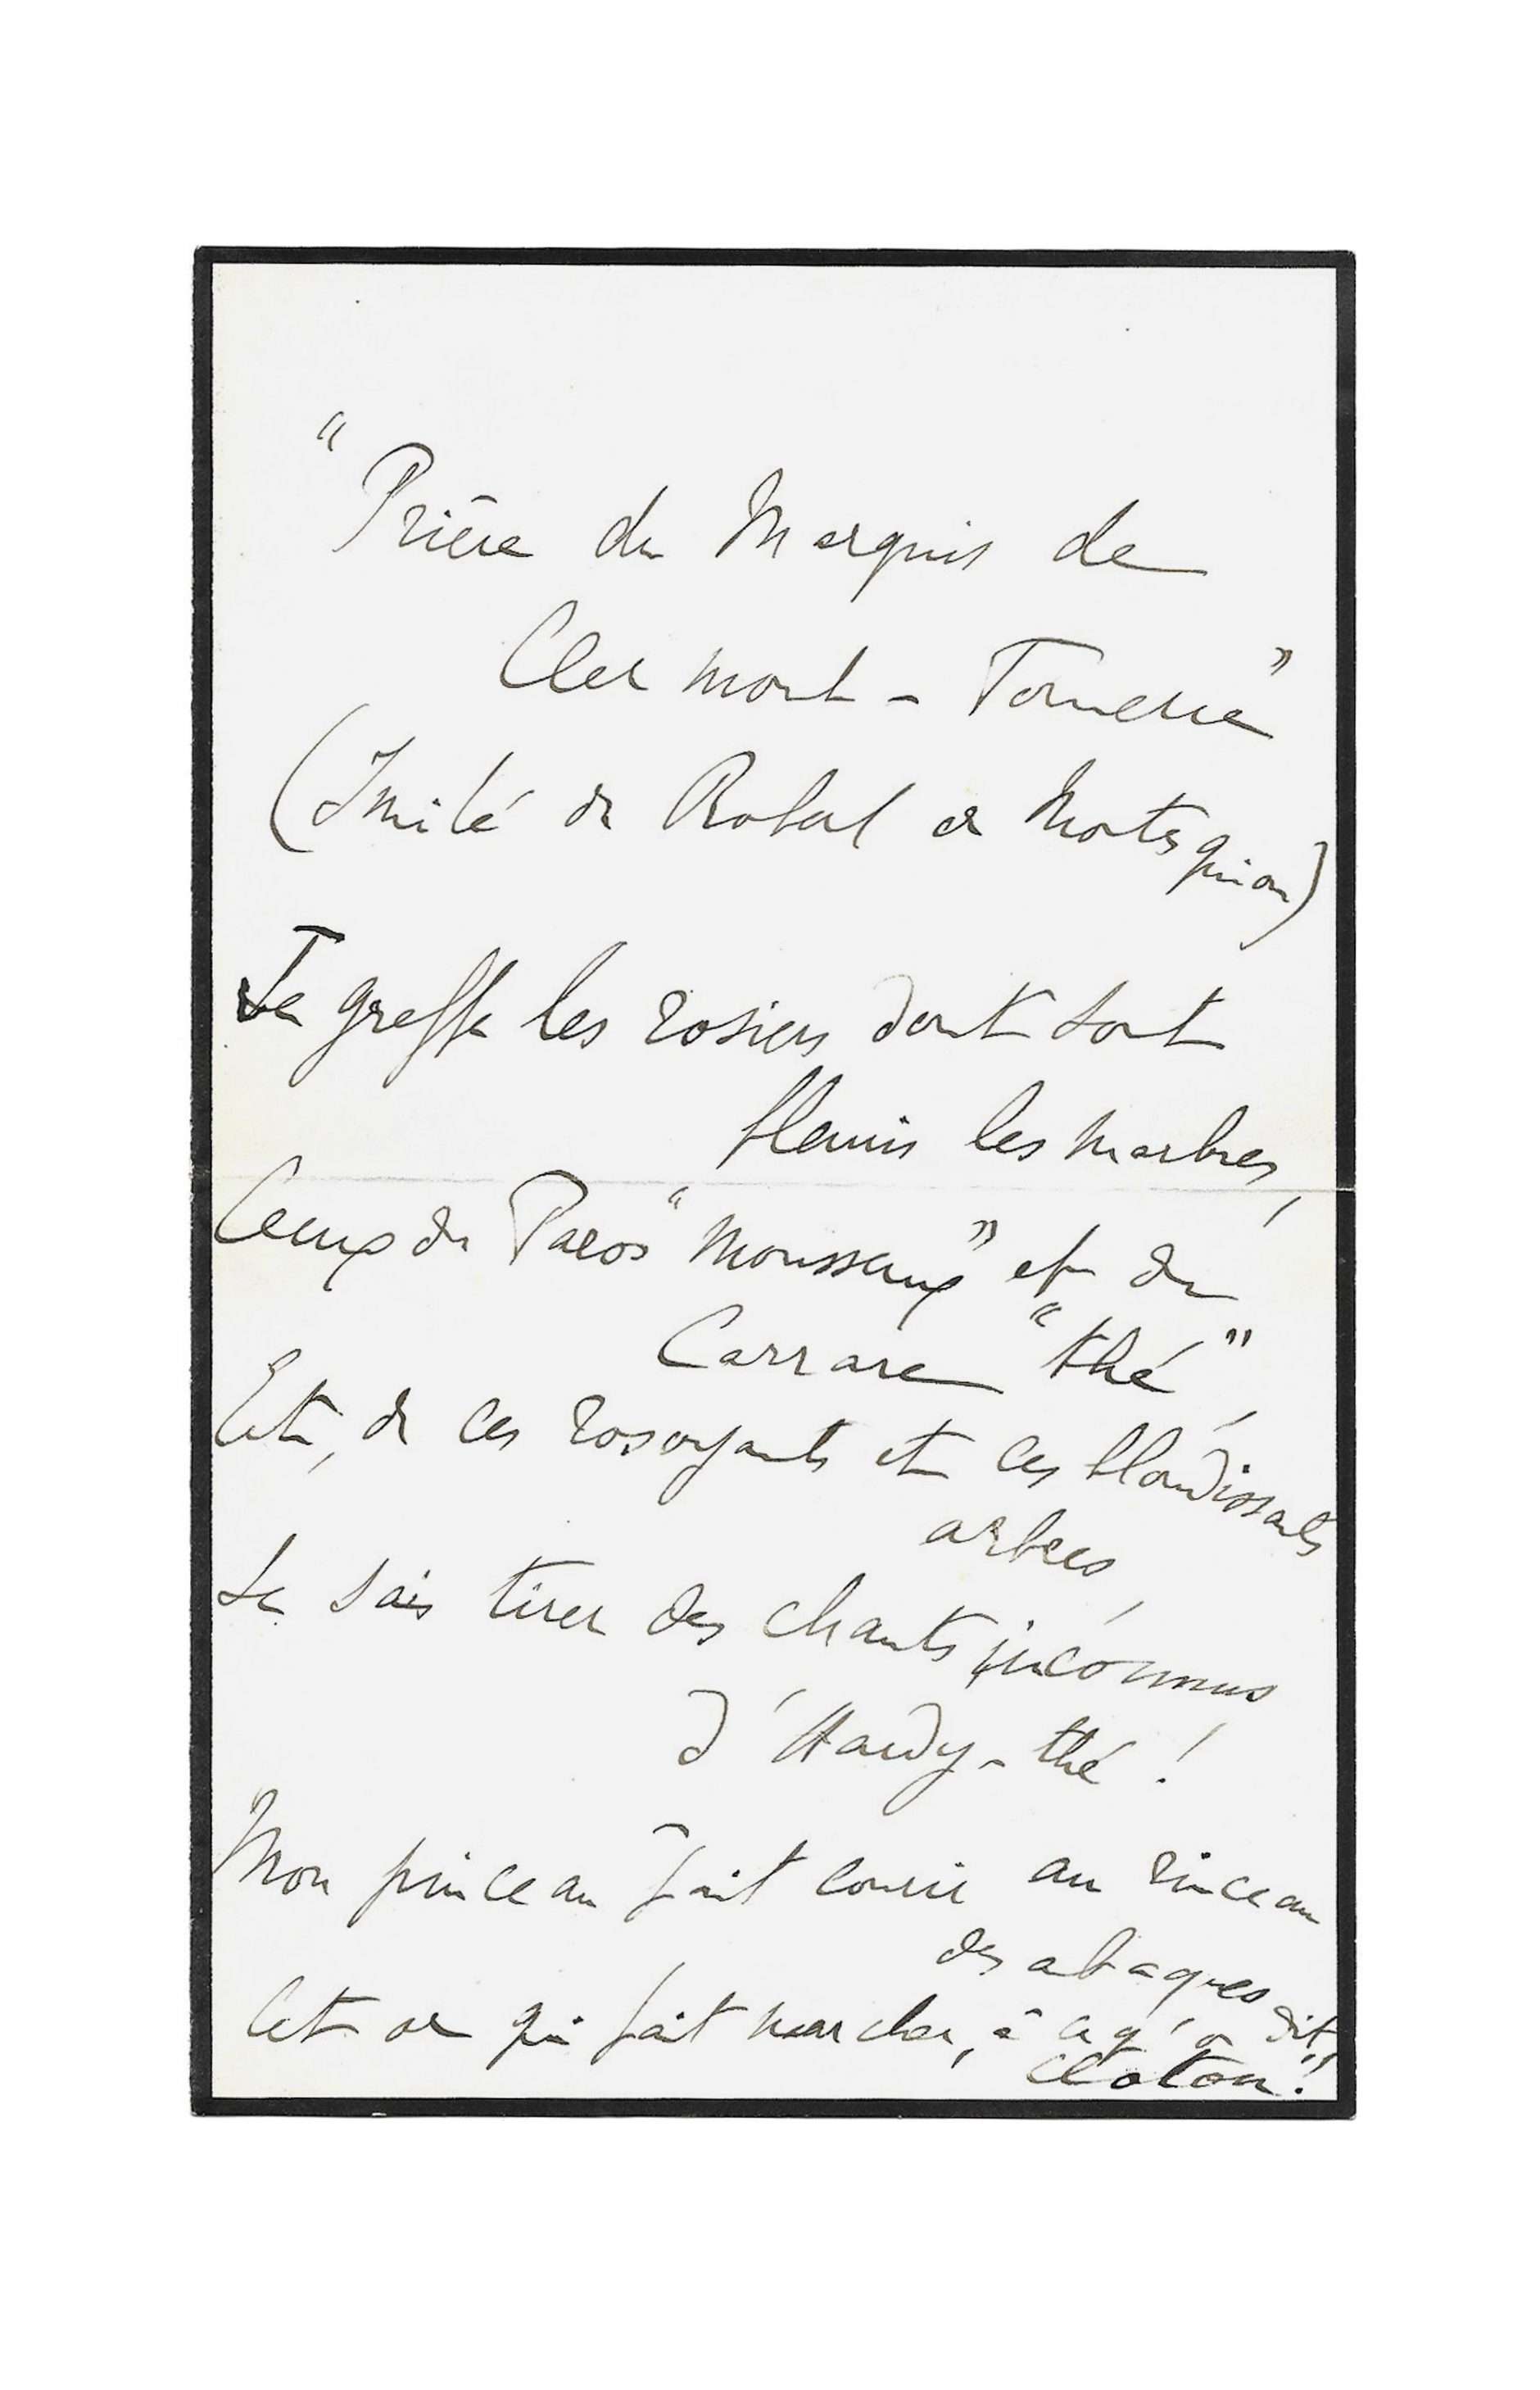 "Prière du Marquis de
Clermont - Tonnerre"
(Imité de Robert de Montesquiou)
Je greffe les rosiers dont sont
fleuris les marbres,
Ceux du Paros "Mousseux" et du
Carrare "thé",
Et, de ces rosoyants et ces blondissants
arbres,
Je sais tirer des chants inconnus
d'Hardy-thé !
Mon pinceau fait courir au rinceau
des abaques
Cet or qui fait marcher, à ce q' on dit,
Cloton!